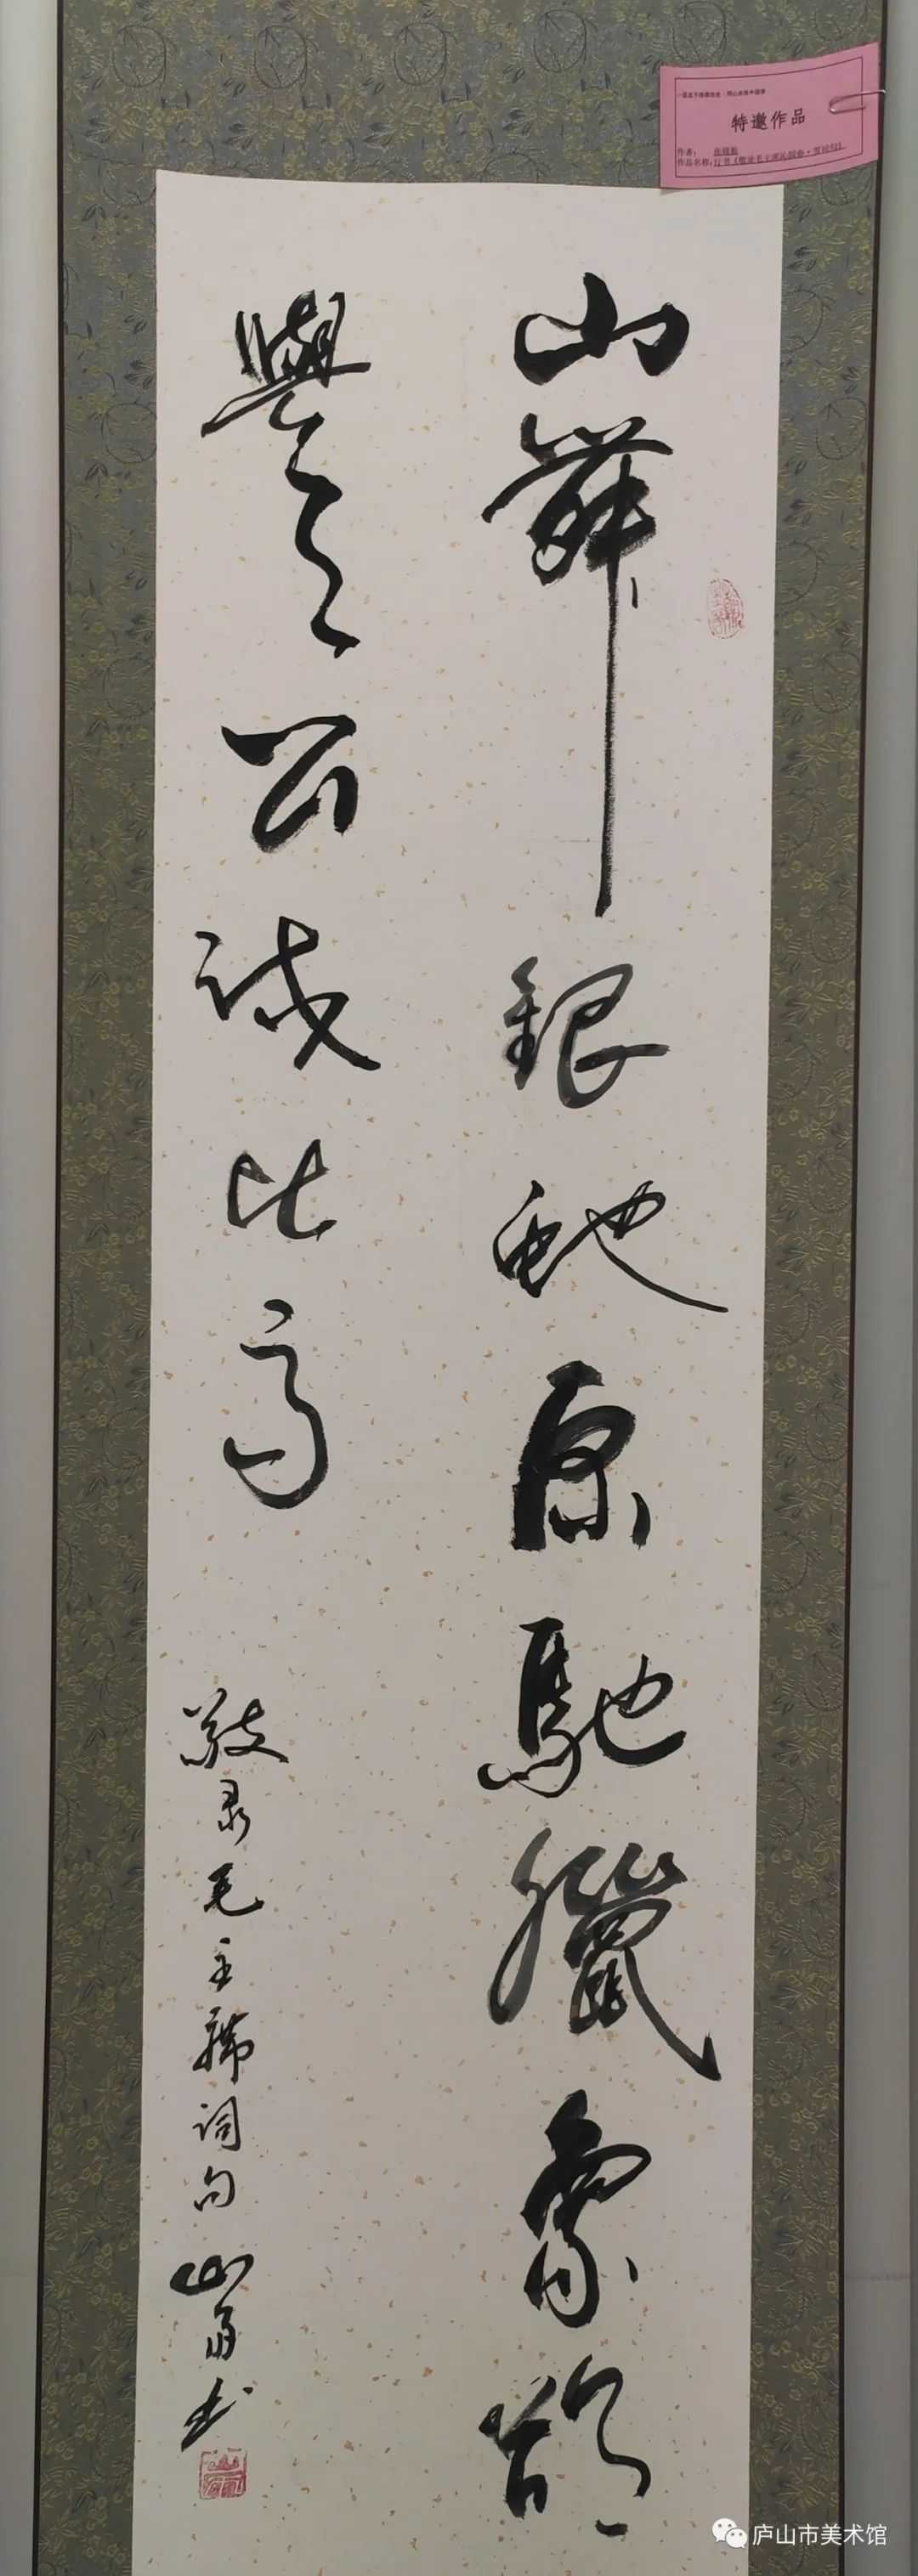 山舞銀蛇原馳臘象欲
與天公試比高
敬录毛主席词句山翁书
特邀作品
作者：
作品名称：
庐山市美术馆